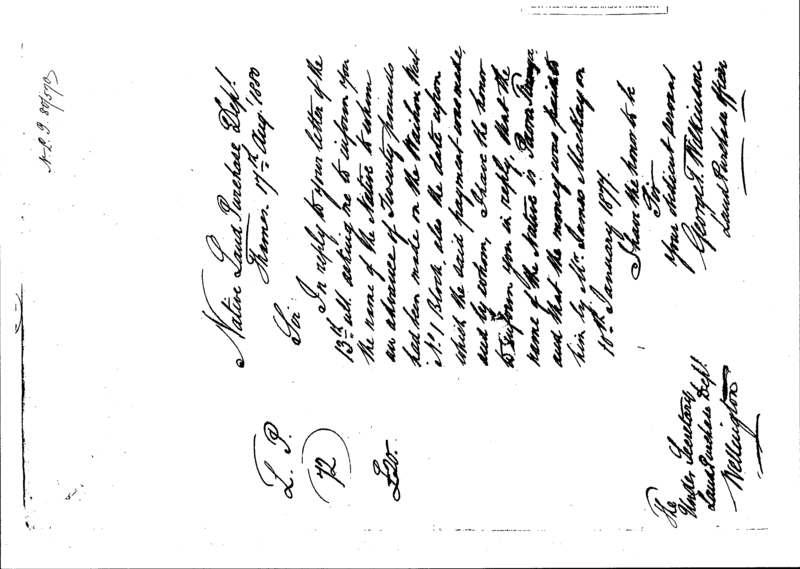 N.L.P. 80/570
Native Land Purchase Dept.
Thames. 17th Aug. 1880
L. P.
72
Sir
In reply to your letter of the
13th ult. asking me to inform you
the name of the Native to whom
an advance of Twenty pounds
had been made on the Waihou West
No 1 Block, also the date upon
which the said payment was made,
and by whom, I have the honor
to inform you in reply, that the
name of the Native is
and that the money was paid to
him by Mr. James Mackay on
10th January 1877.
I have the honor to be
Sir
Your obedient servant
George T. Wilkinson
Land Purchase Officer
The
Under Secretary
Land Purchase Dept.
Wellington